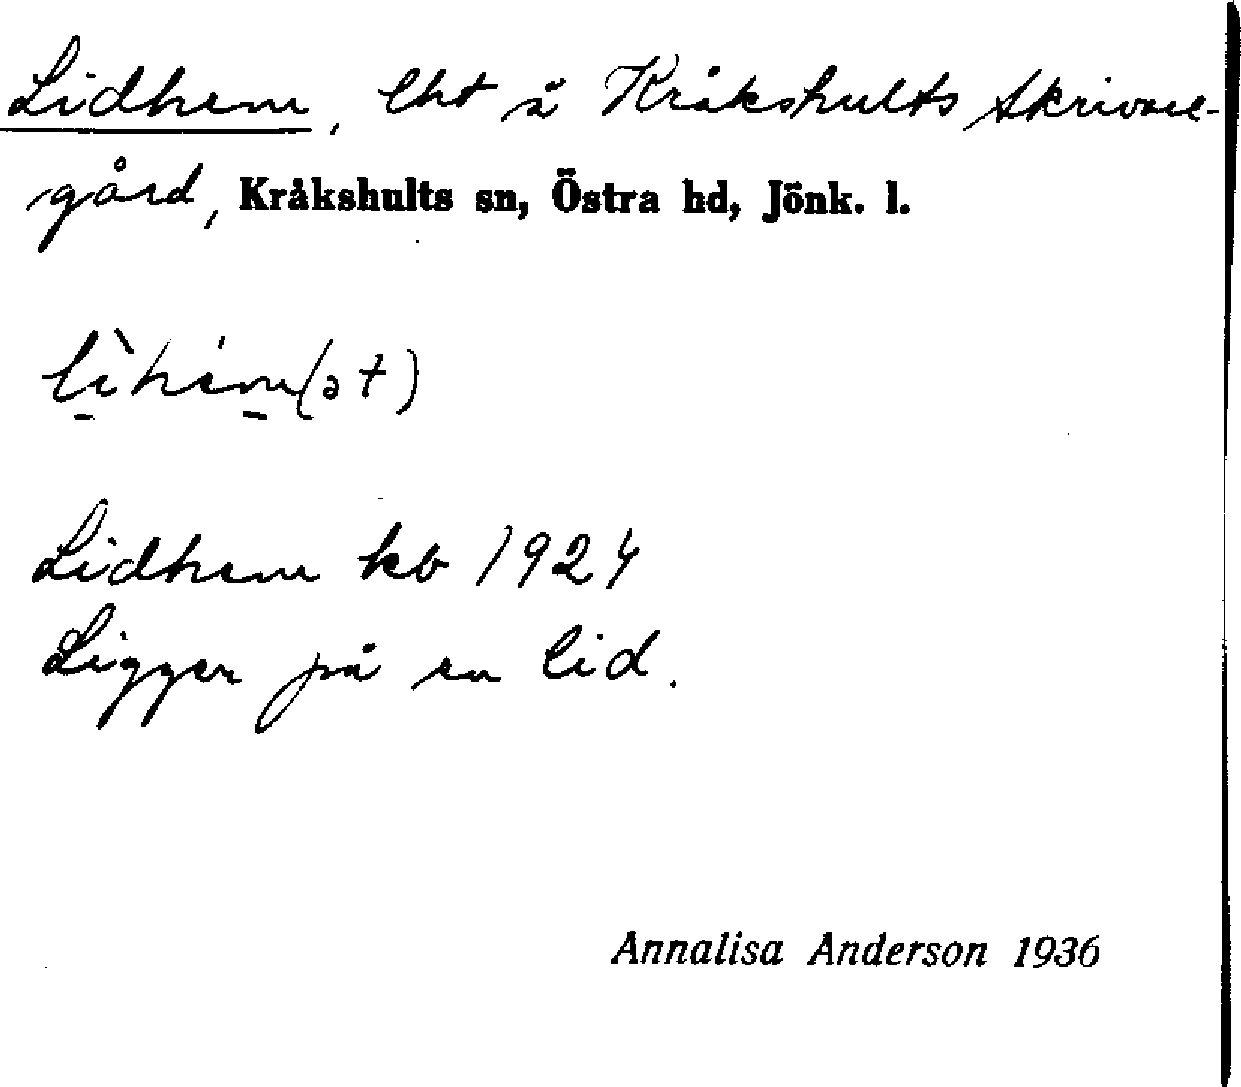 Lidhem, lht å Kråkshults Skrivare-
gård, Kråkshults sn, Östra hd, Jönk. l.
lìhém(ət)
Lidhem kb 1924
Ligger på en lid.
Annalisa Anderson 1936